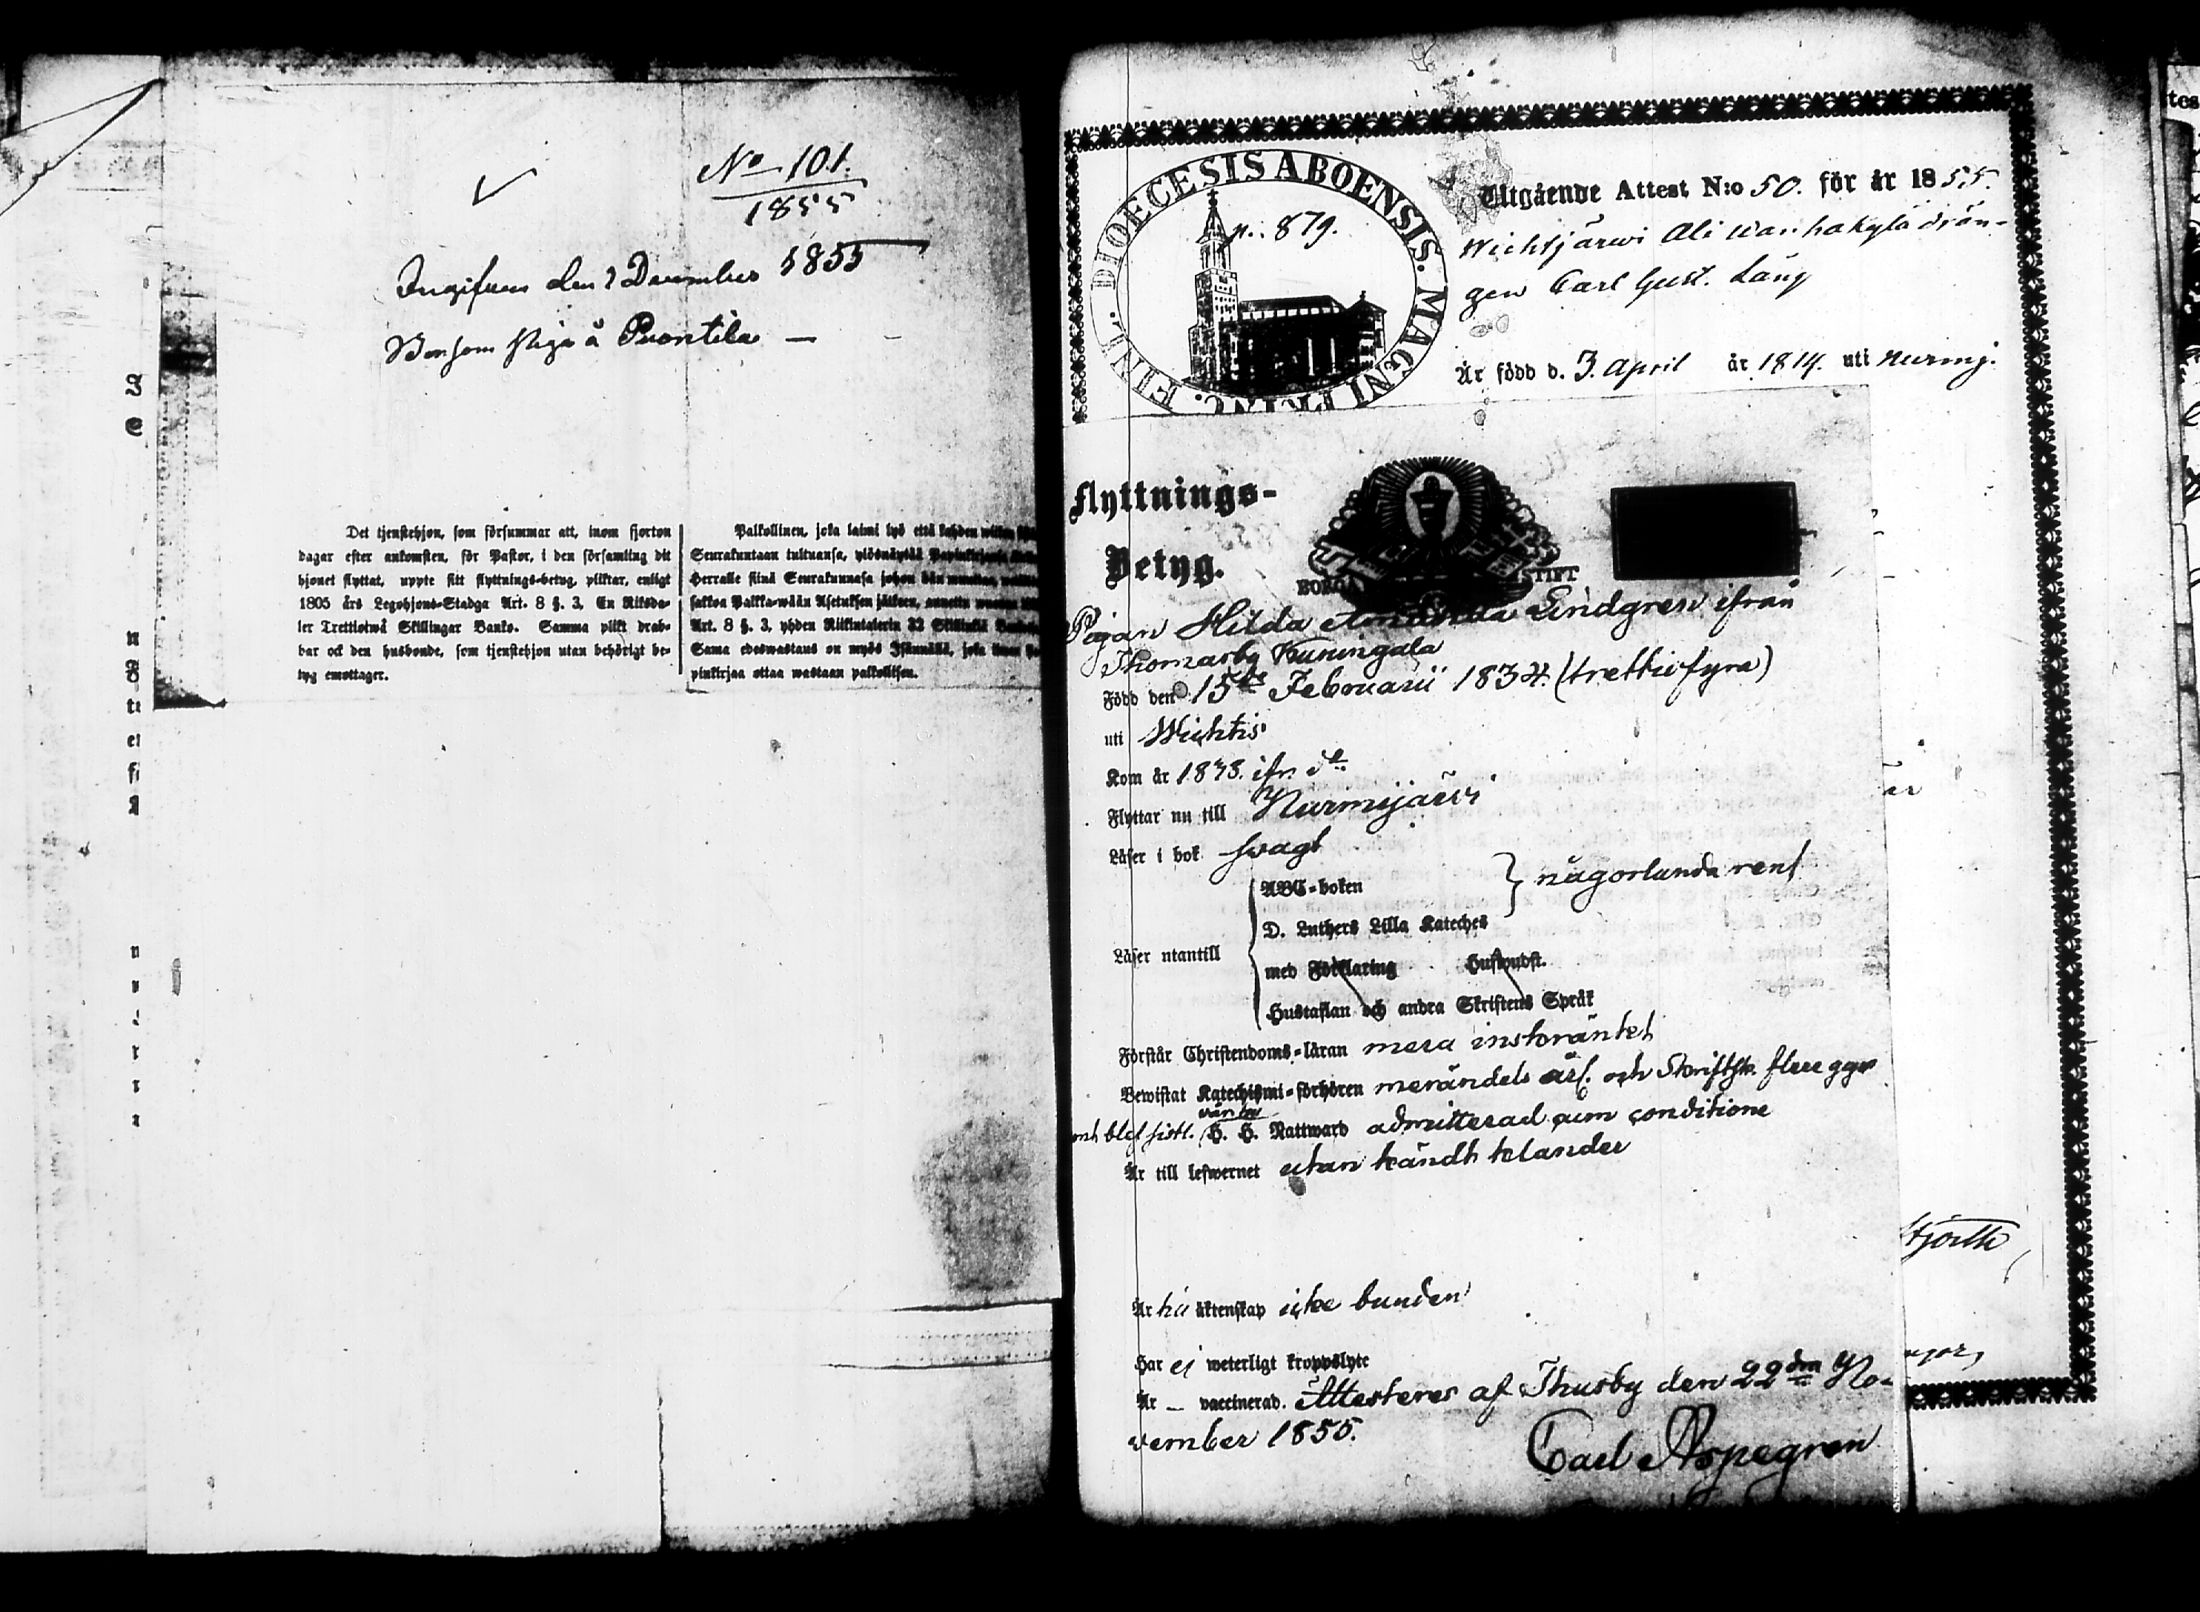 No 101.
1855
Ingifven den 2 December 1855
Bor som piga å Puontila —
Det tjenstehjon, som försummar att, inom fjorton
dagar efter ankomsten, för Pastor, i den församling dit
hjonet flyttat, uppte sitt flyttnings-betyg, pliktar, enligt
1805 års Legohjons-Stadga Art. 8 §. 3, En Riksda-
ler Trettiotwå Skillingar Banko. Samma plikt drab-
bar ock den husbonde, som tjenstehjon utan behörigt be-
tyg emottager.
Palkollinen, joka laimi lyö että kahden wiikon
Seurakuntaan tultuansa, ylösnäyttää Papinkirjansa
Herralle siinä Seurakunnasa johon hän muuttaa,
sakkoa Palkka-wään Asetuksen jälkeen, annettu wuonna
Art. 8 §. 3, yhden Riikintalerin 32 Skillinkiä
Sama edeswastaus on myös Isännällä, joka ilman
pinkirjaa ottaa wastaan palkollisen.
DIOECESIS ABOENSIS. MAGNI PRINC. FINL.
p. 879.
Utgående Attest N:o 50. för år 1855.
Wichtjärwi Ali Wanhakylä drän-
gen Carl Gust. Lång
Är född d. 3. April år 1814. uti Nurmj.
Flyttnings-
Betyg.
BORGÅ STIFT
Pigan Hilda Amanda Lindgren ifrån
Thomasby Kuningala
Född den 15de Februarii 1834. (trettiofyra)
uti Wichtis
Kom år 1848. ifr. d:o
Flyttar nu till Nurmijärvi
Läser i bok svagt
ABC-boken } någorlunda rent
D. Luthers Lilla Kateches
Läser utantill
med Förklaring Huswudst.
Hustaflan och andra Skriftens Språk
Förstår Christendoms-läran mera inskränket
Bewistat Katechismi-förhören merändels årl. och Skriftsk. flere ggr
H. H. Nattward admitterad cum conditione
Är till lefwernet utan kändt klander
Är till äktenskap icke bunden
Har ej weterligt kroppslyte
Är — vaccinerad. Attesteras af Thusby den 22dra No-
vember 1855.
Carl Aspegren